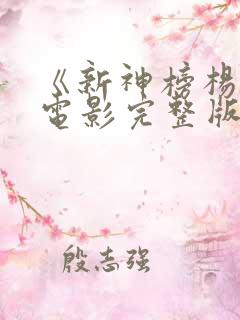 《新神榜杨
电影完整版
殷志强